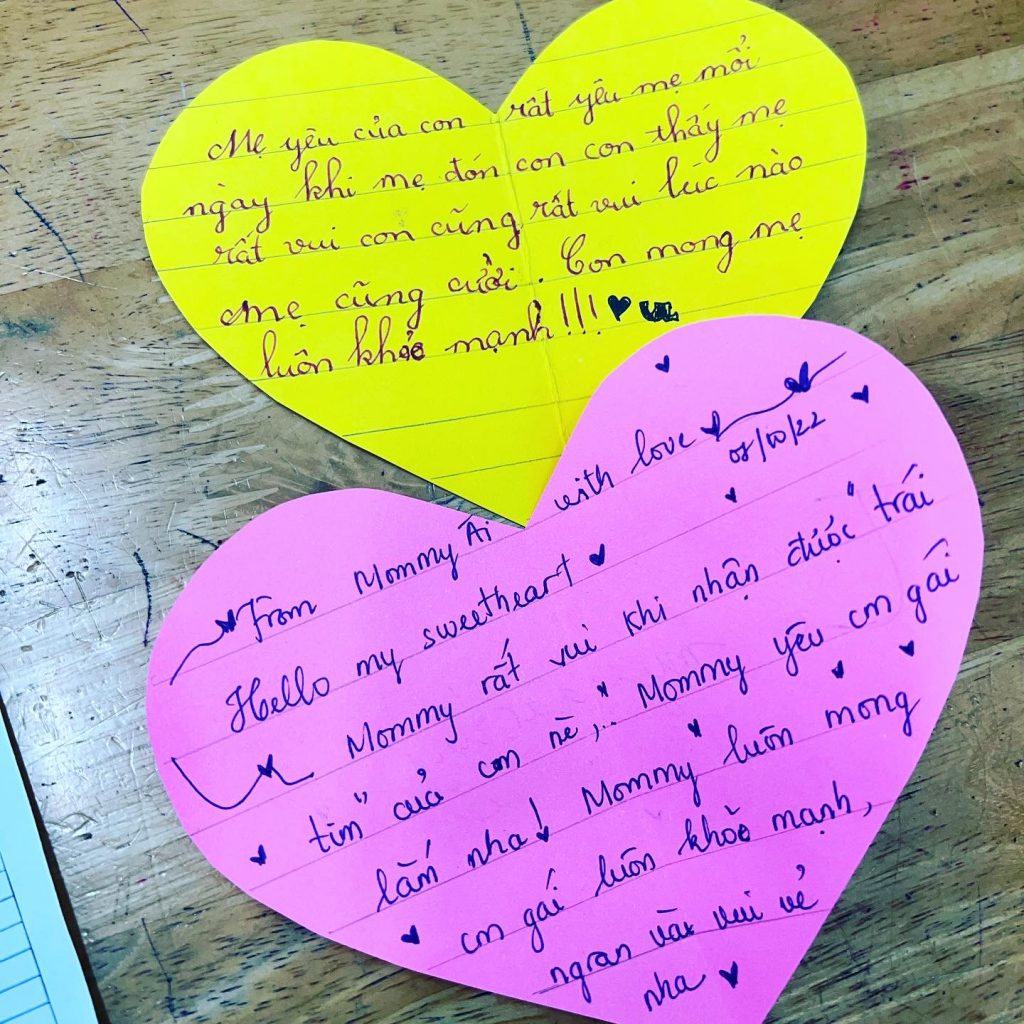 Mẹ yêu của con rất yêu mẹ mỗi
ngày khi mẹ đón con con thấy mẹ
rất vui con cũng rất vui lúc nào
mẹ cũng cười. Con mong mẹ
luôn khỏe mạnh!!!
From Mommy Ái with love
Hello my sweetheart
Mommy rất vui khi nhận được "trái
tim" của con nè,.. Mommy yêu con gái
lắm nha! Mommy luôn mong
con gái luôn khỏe mạnh,
ngoan và vui vẻ
nha